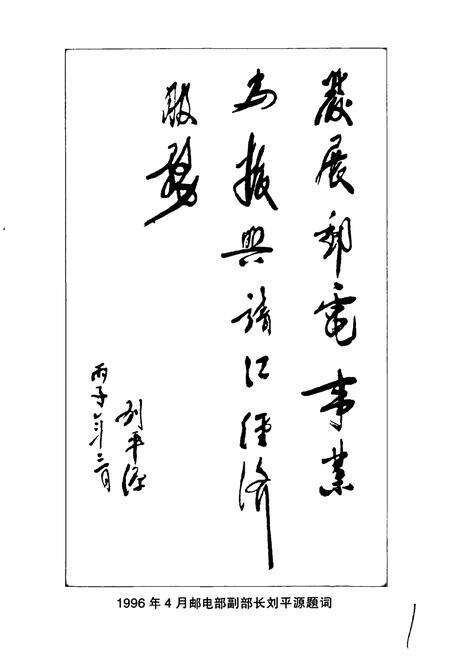 發展郵電事業
为振興靖江經濟
服務
刘平源
丙子年三月
1996 年 4 月邮电部副部长刘平源题词